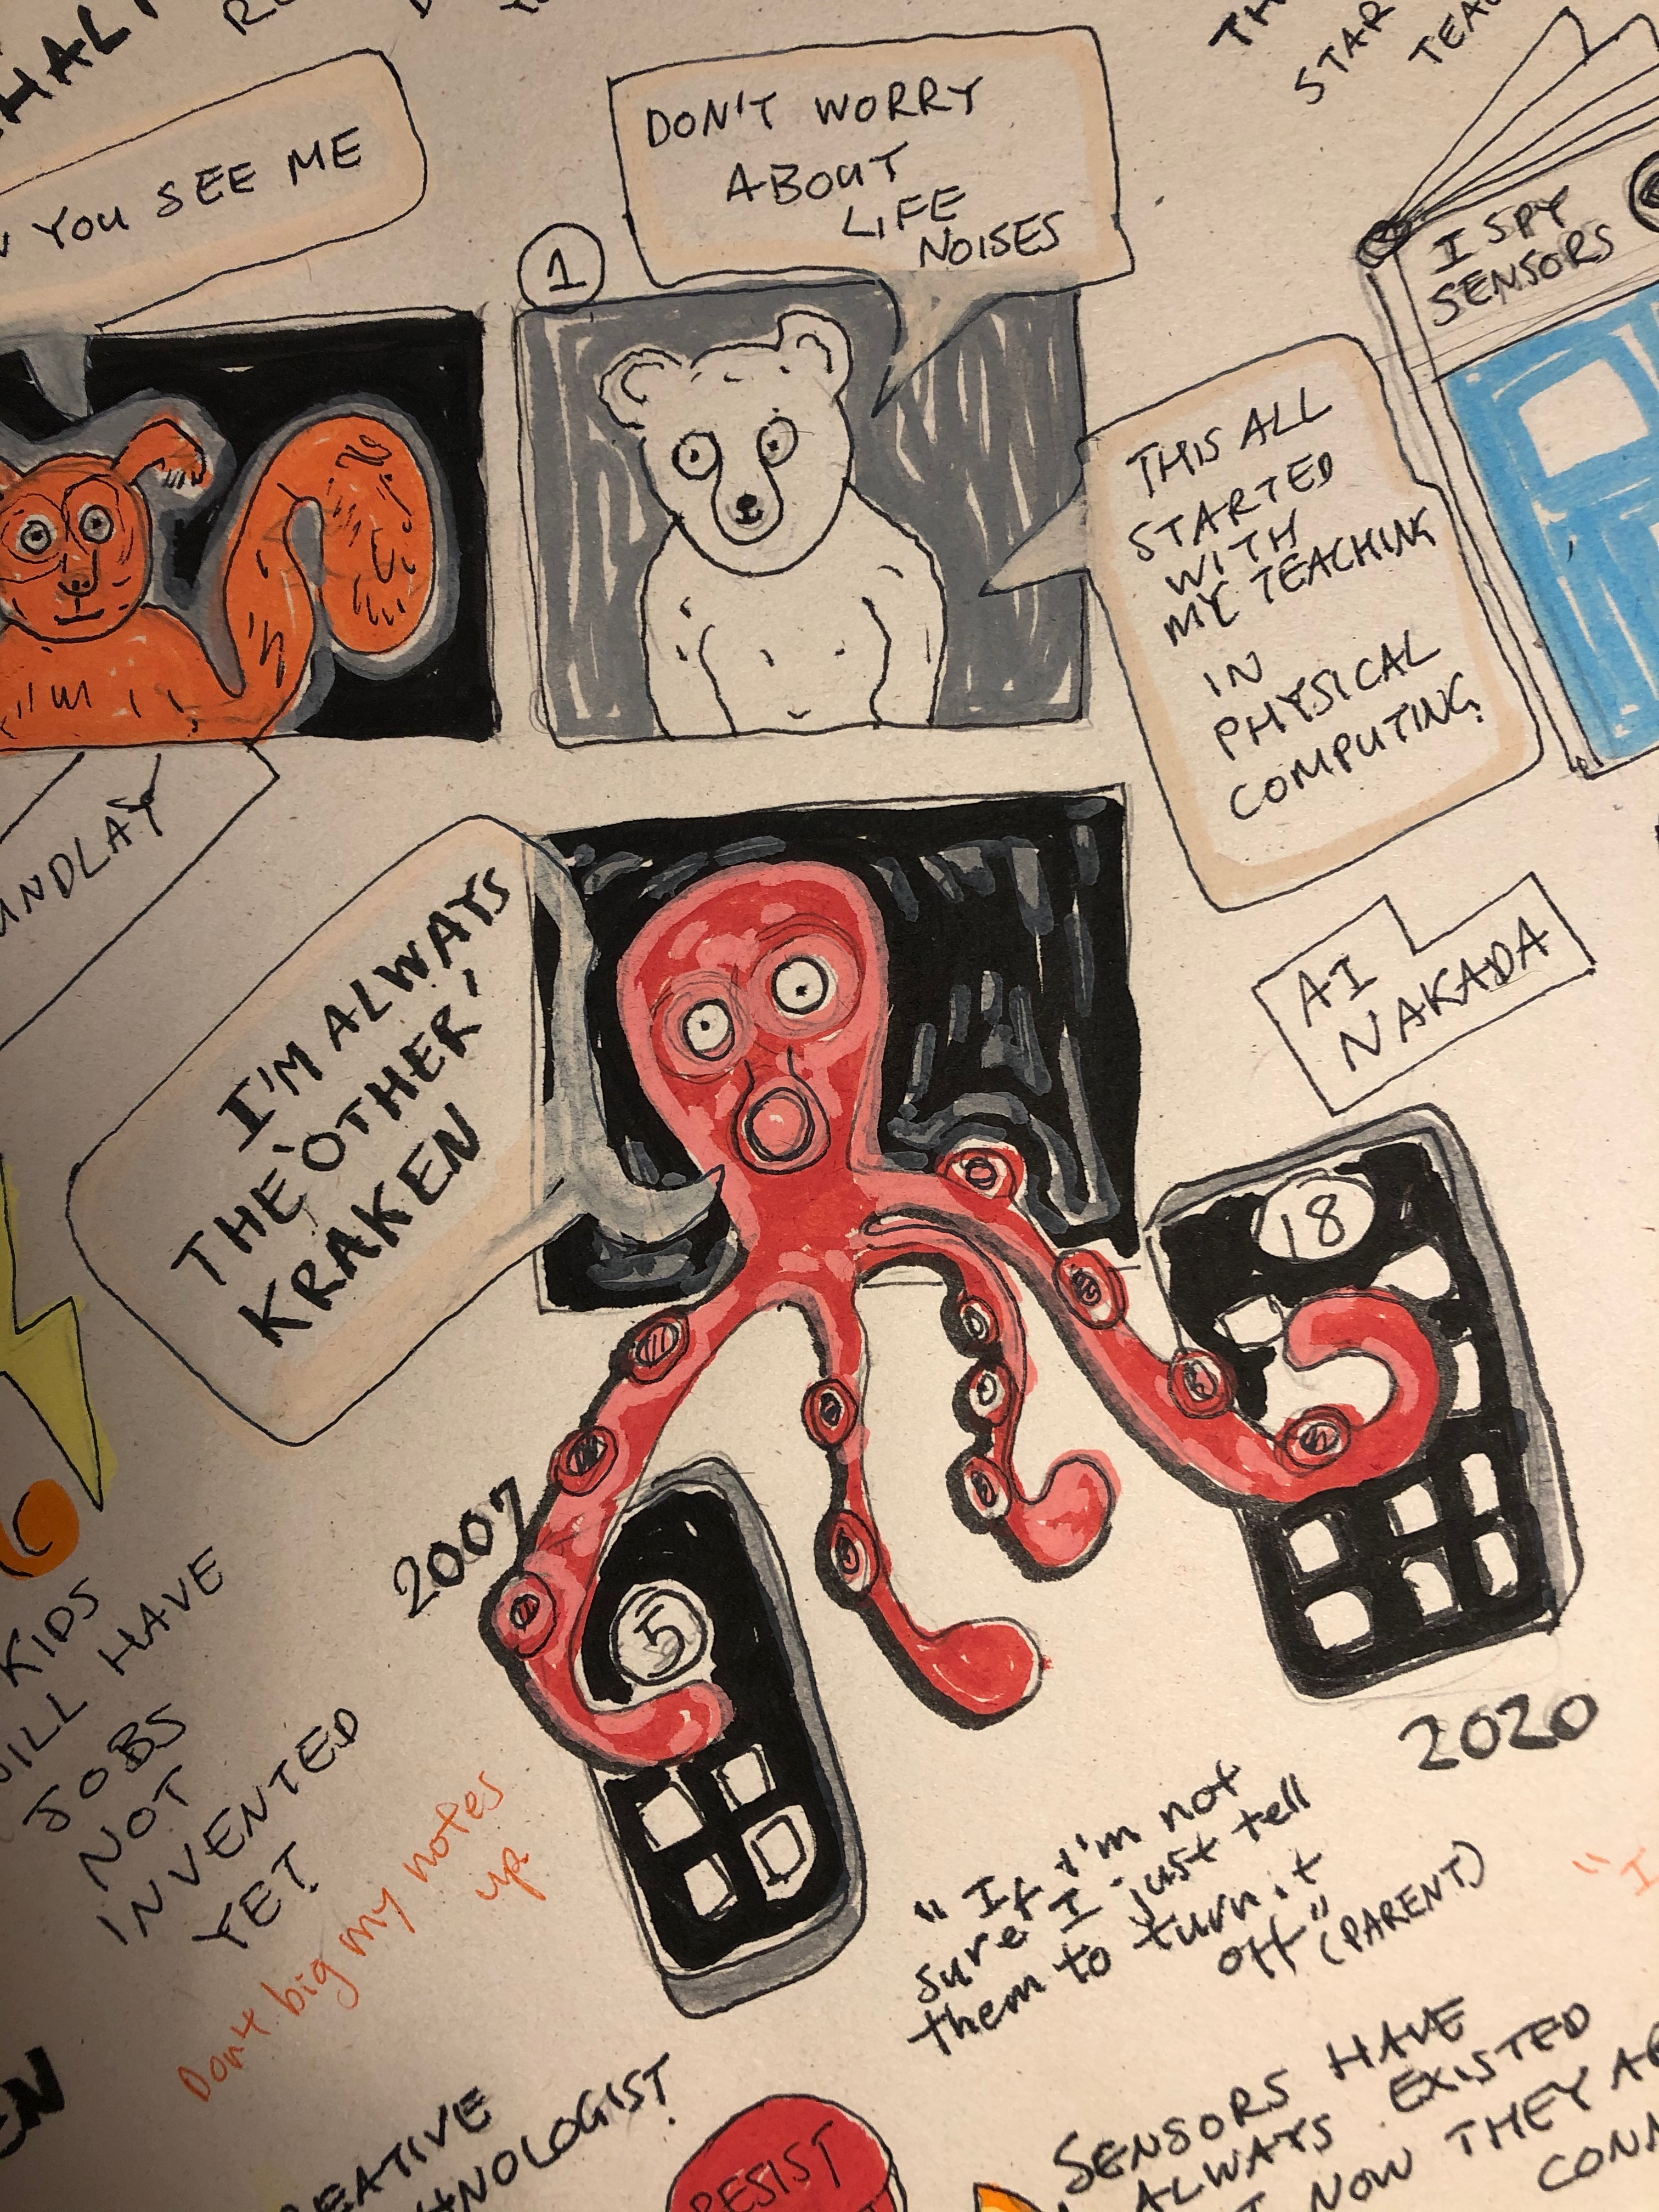 YOU SEE ME
1
DON'T WORRY
ABOUT
LIFE
NOISES
STAR
I SPY
SENSORS
THIS ALL
STARTED
WITH
MY TEACHING
IN
PHYSICAL
COMPUTING
AI
NAKADA
I'M ALWAYS
THE 'OTHER'
KRAKEN
18
2007
5
2020
KIDS
WILL HAVE
JOBS
NOT
INVENTED
YET
Don't big my notes
up
"If I'm not
sure I just tell
them to turn it
off"
(PARENT)
"I
SENSORS HAVE
ALWAYS EXISTED
NOW THEY
RESIST